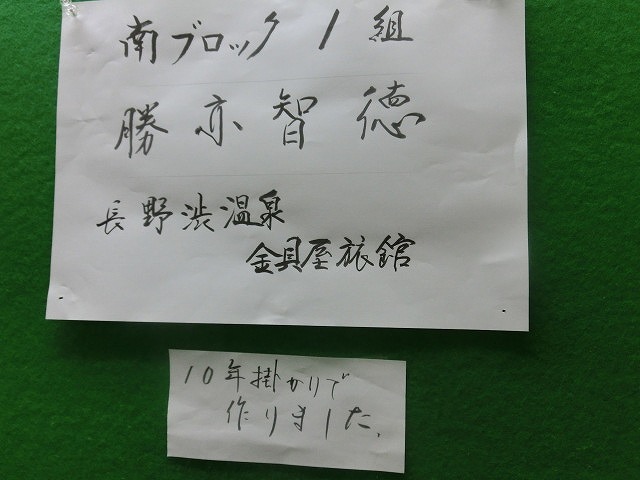 南ブロック 1 組
勝亦智徳
長野渋温泉
金具屋旅館
10年掛かりで
作りました.